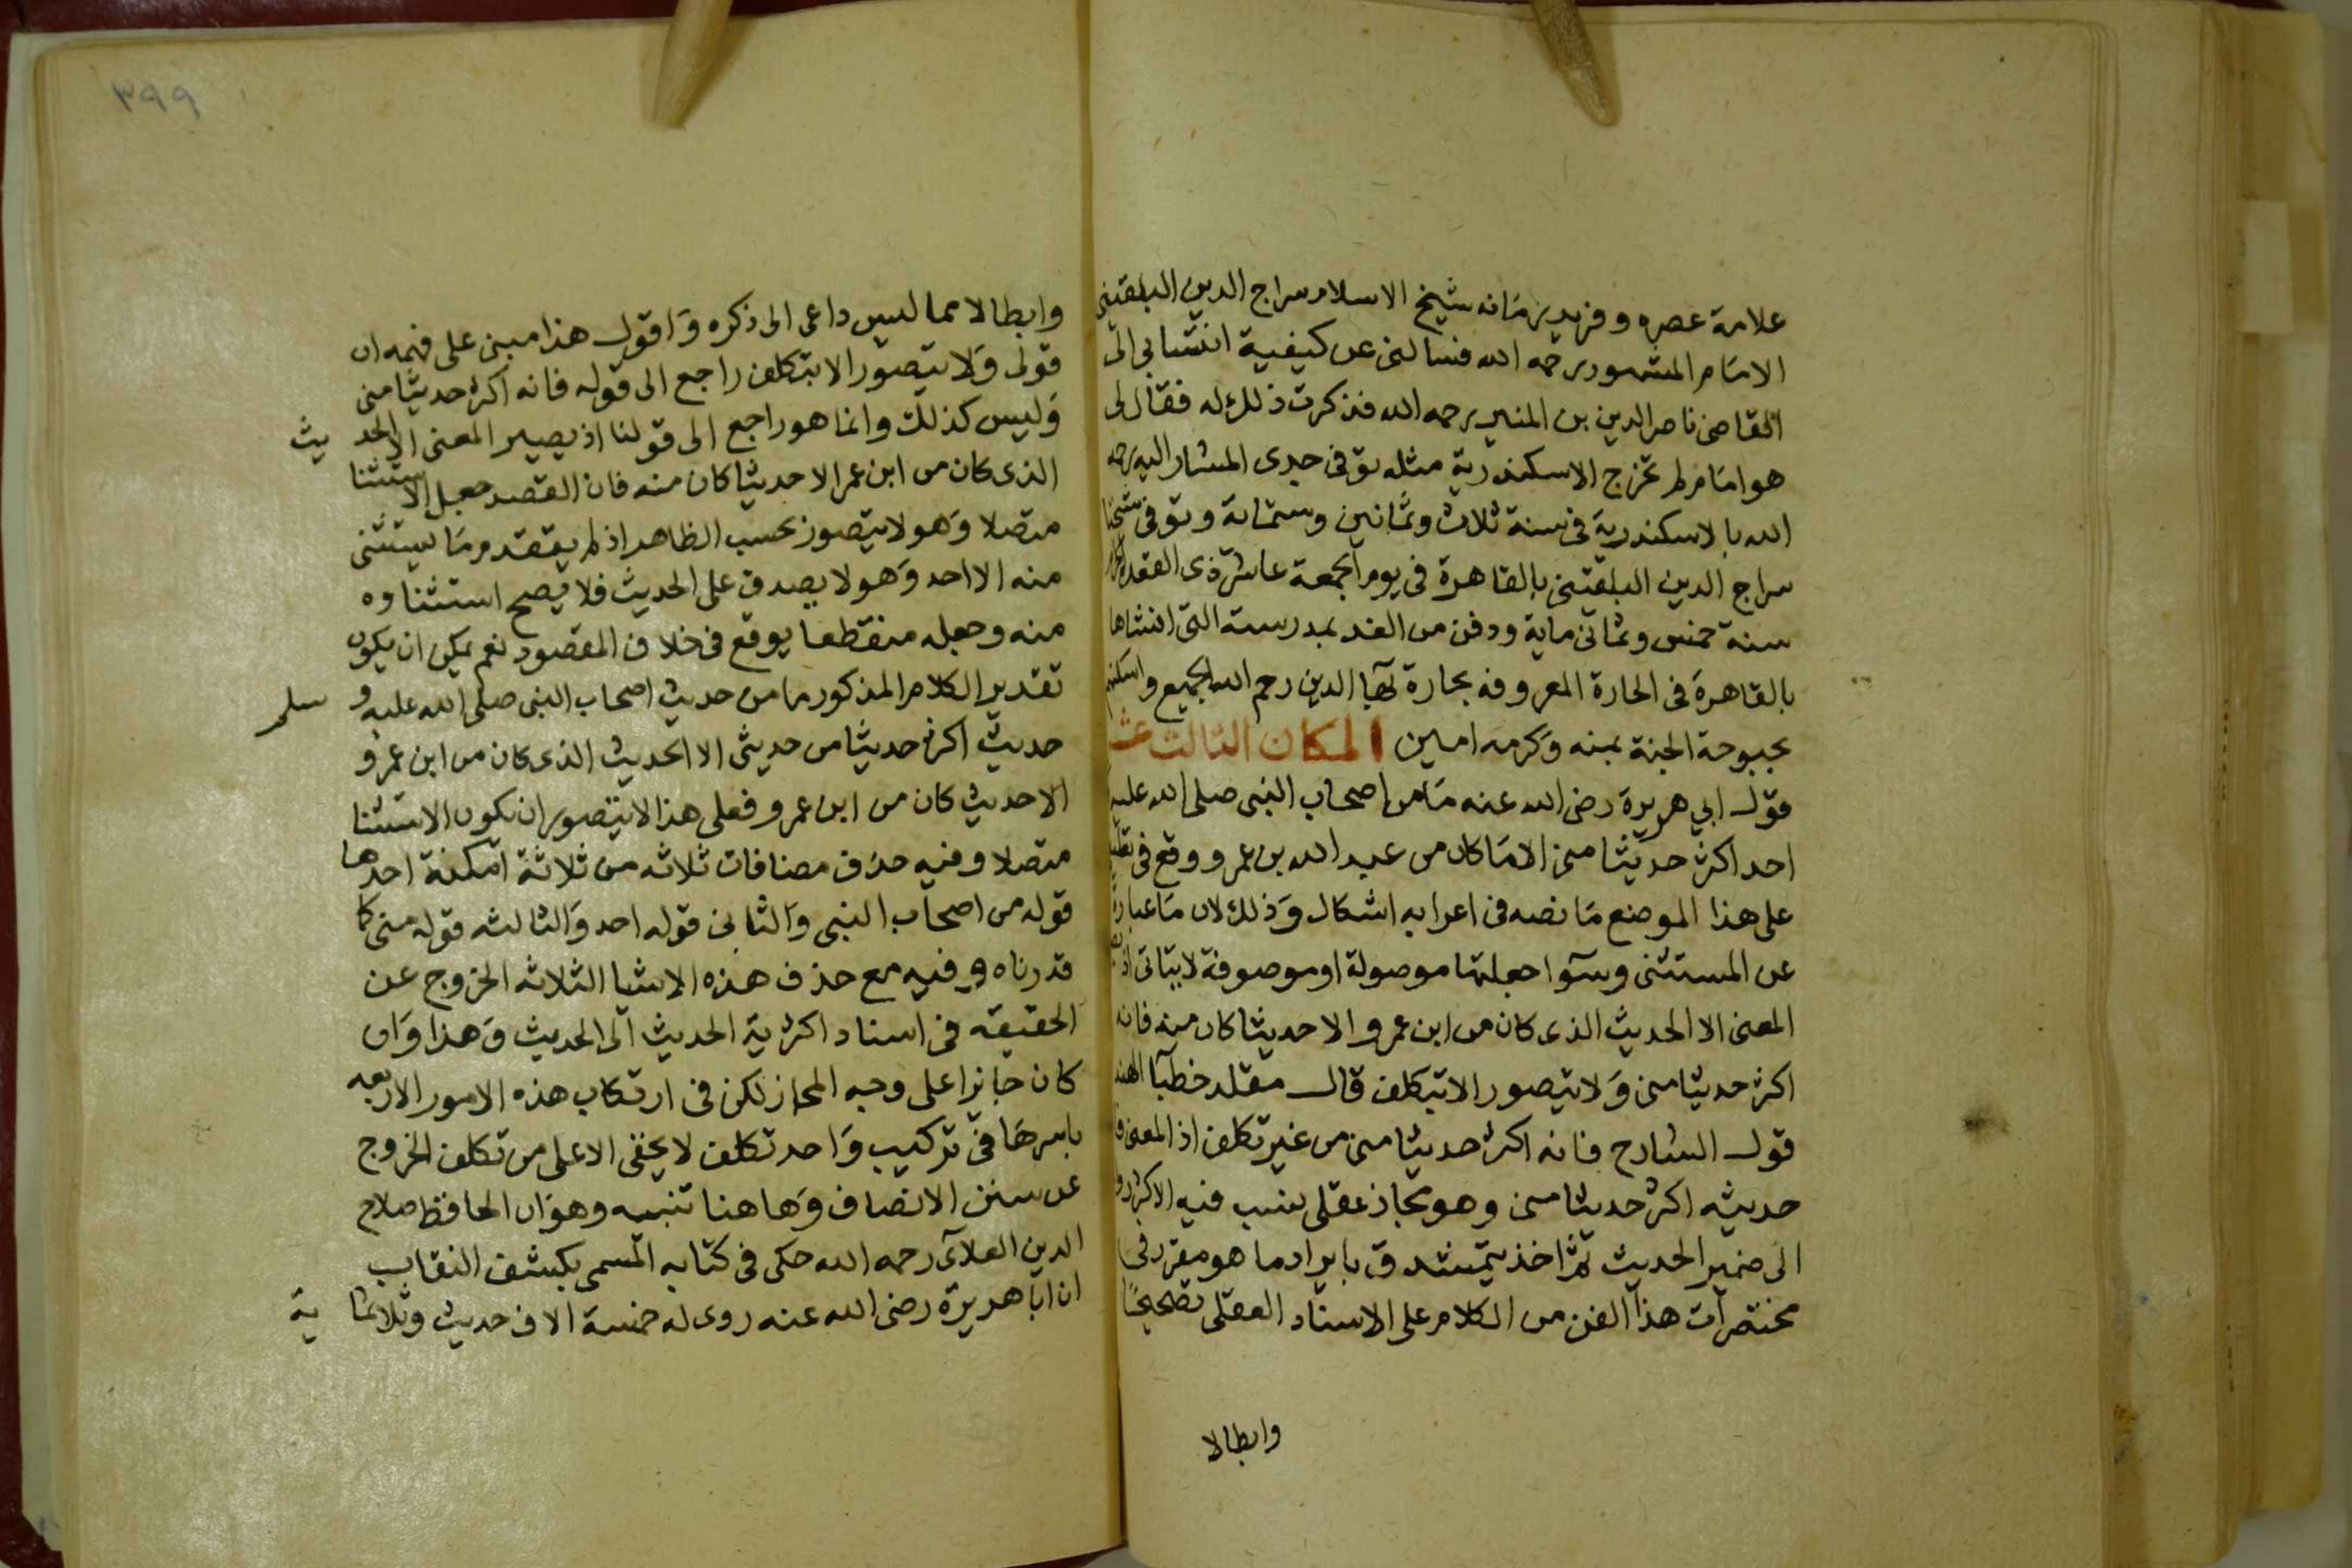 علامة عصره وفريد زمانه شيخ الاسلام سراج الدين البلقيني
الامام المشهور رحمه الله فسالنى عن كيفية انتسابي الى
القاضى ناصر الدين بن المنير رحمه الله فذكرت ذلك له فقال لى
هو امام لم تخرج الاسكندرية مثله توفى جدى المشار اليه رحمه
الله بالاسكندرية فى سنة ثلاث وثمانين وستماية وتوفى شيخنا
سراج الدين البلقينى بالقاهرة فى يوم الجمعة عاشر ذى القعدة
سنة خمس وثمانى ماية ودفن من الغد بمدرسته التى انشاها
بالقاهرة فى الحارة المعروفه بحارة بها الدين رحم الله الجميع واسكنهم
بحبوحة الجنة بمنه وكرمه امين المكان الثالث عشر
قول ابي هريرة رضى الله عنه ما من اصحاب النبى صلى الله عليه
احد اكثر حديثا منى الا ما كان من عبد الله بن عمرو ووقع فى
على هذا الموضع ما نصه فى اعرابه اشكال وذلك لان ما عبارة
عن المستثنى وسوا جعلتها موصولة او موصوفة لا يتاتى
المعنى الا الحديث الذى كان من ابن عمرو الا حديثا كان منه فانه
اكثر حديثا منى ولا يتصور الا بتكلف قال مقلد خطبا الهند
قول الشارح فانه اكثر حديثا منى من غير تكلف اذ المعنى
حديثه اكثر حديثا منى وهو مجاز عقلى نسب فيه
الى ضمير الحديث ثم اخذ يتمشدق بايراد ما هو مقرر فى
مختصرات هذا الفن من الكلام على الاسناد العقلى تصحيحًا
وابطالا
٣٩٩
وابطالا مما ليس داعى الى ذكره واقول هذا مبنى على فهمه ان
قولى ولا يتصور الا بتكلف راجع الى قوله فانه اكثر حديثا منى
وليس كذلك وانما هو راجع الى قولنا اذ يصير المعنى الا الحديث
الذى كان من ابن عمر الا حديثا كان منه فان القصد جعل الاستثنا
متصلا وهو لا يتصور بحسب الظاهر اذ لم يتقدم ما يستثنى
منه الا احد وهو لا يصدق على الحديث فلا يصح استثناوه
منه وجعله منقطعا يوقع فى خلاف المقصود نعم يمكن ان يكون
تقدير الكلام المذكور ما من حديث اصحاب النبى صلى الله عليه وسلم
حديث اكثر حديثا من حديثى الا الحديث الذى كان من ابن عمرو
الا حديث كان من ابن عمرو فعلى هذا لا يتصور ان يكون الاستثنا
متصلا وفيه حذف مضافات ثلاثه من ثلاثة امكنة احدها
قوله من اصحاب النبى والثانى قوله احد والثالثه قوله منى كما
قدرناه وفيه مع حذف هذه الاشيا الثلاثه الخروج عن
الحقيقه فى اسناد اكثرية الحديث الى الحديث وهذا وان
كان جايزا على وجه المجاز لكن فى ارتكاب هذه الامور الاربعه
باسرها فى تركيب واحد تكلف لا يخفى الا على من تكلف الخروج
عن سنن الانصاف وهاهنا تنبيه وهو ان الحافظ صلاح
الدين العلاى رحمه الله حكى فى كتابه المسمى بكشف النقاب
ان ابا هريرة رضى الله عنه روى له خمسة الاف حديث وثلاثماية